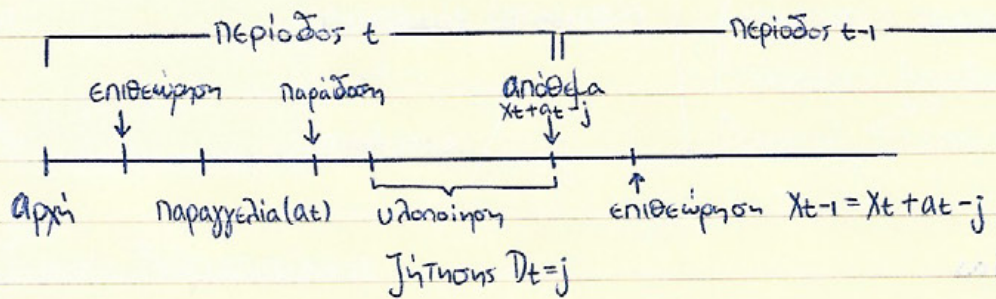 περίοδος t περίοδος t-1
επιθεώρηση παράδοση απόθεμα
xt+at-j
αρχή παραγγελία(at) υλοποίηση επιθεώρηση Xt-1 = Xt + at - j
ζήτησης Dt=j